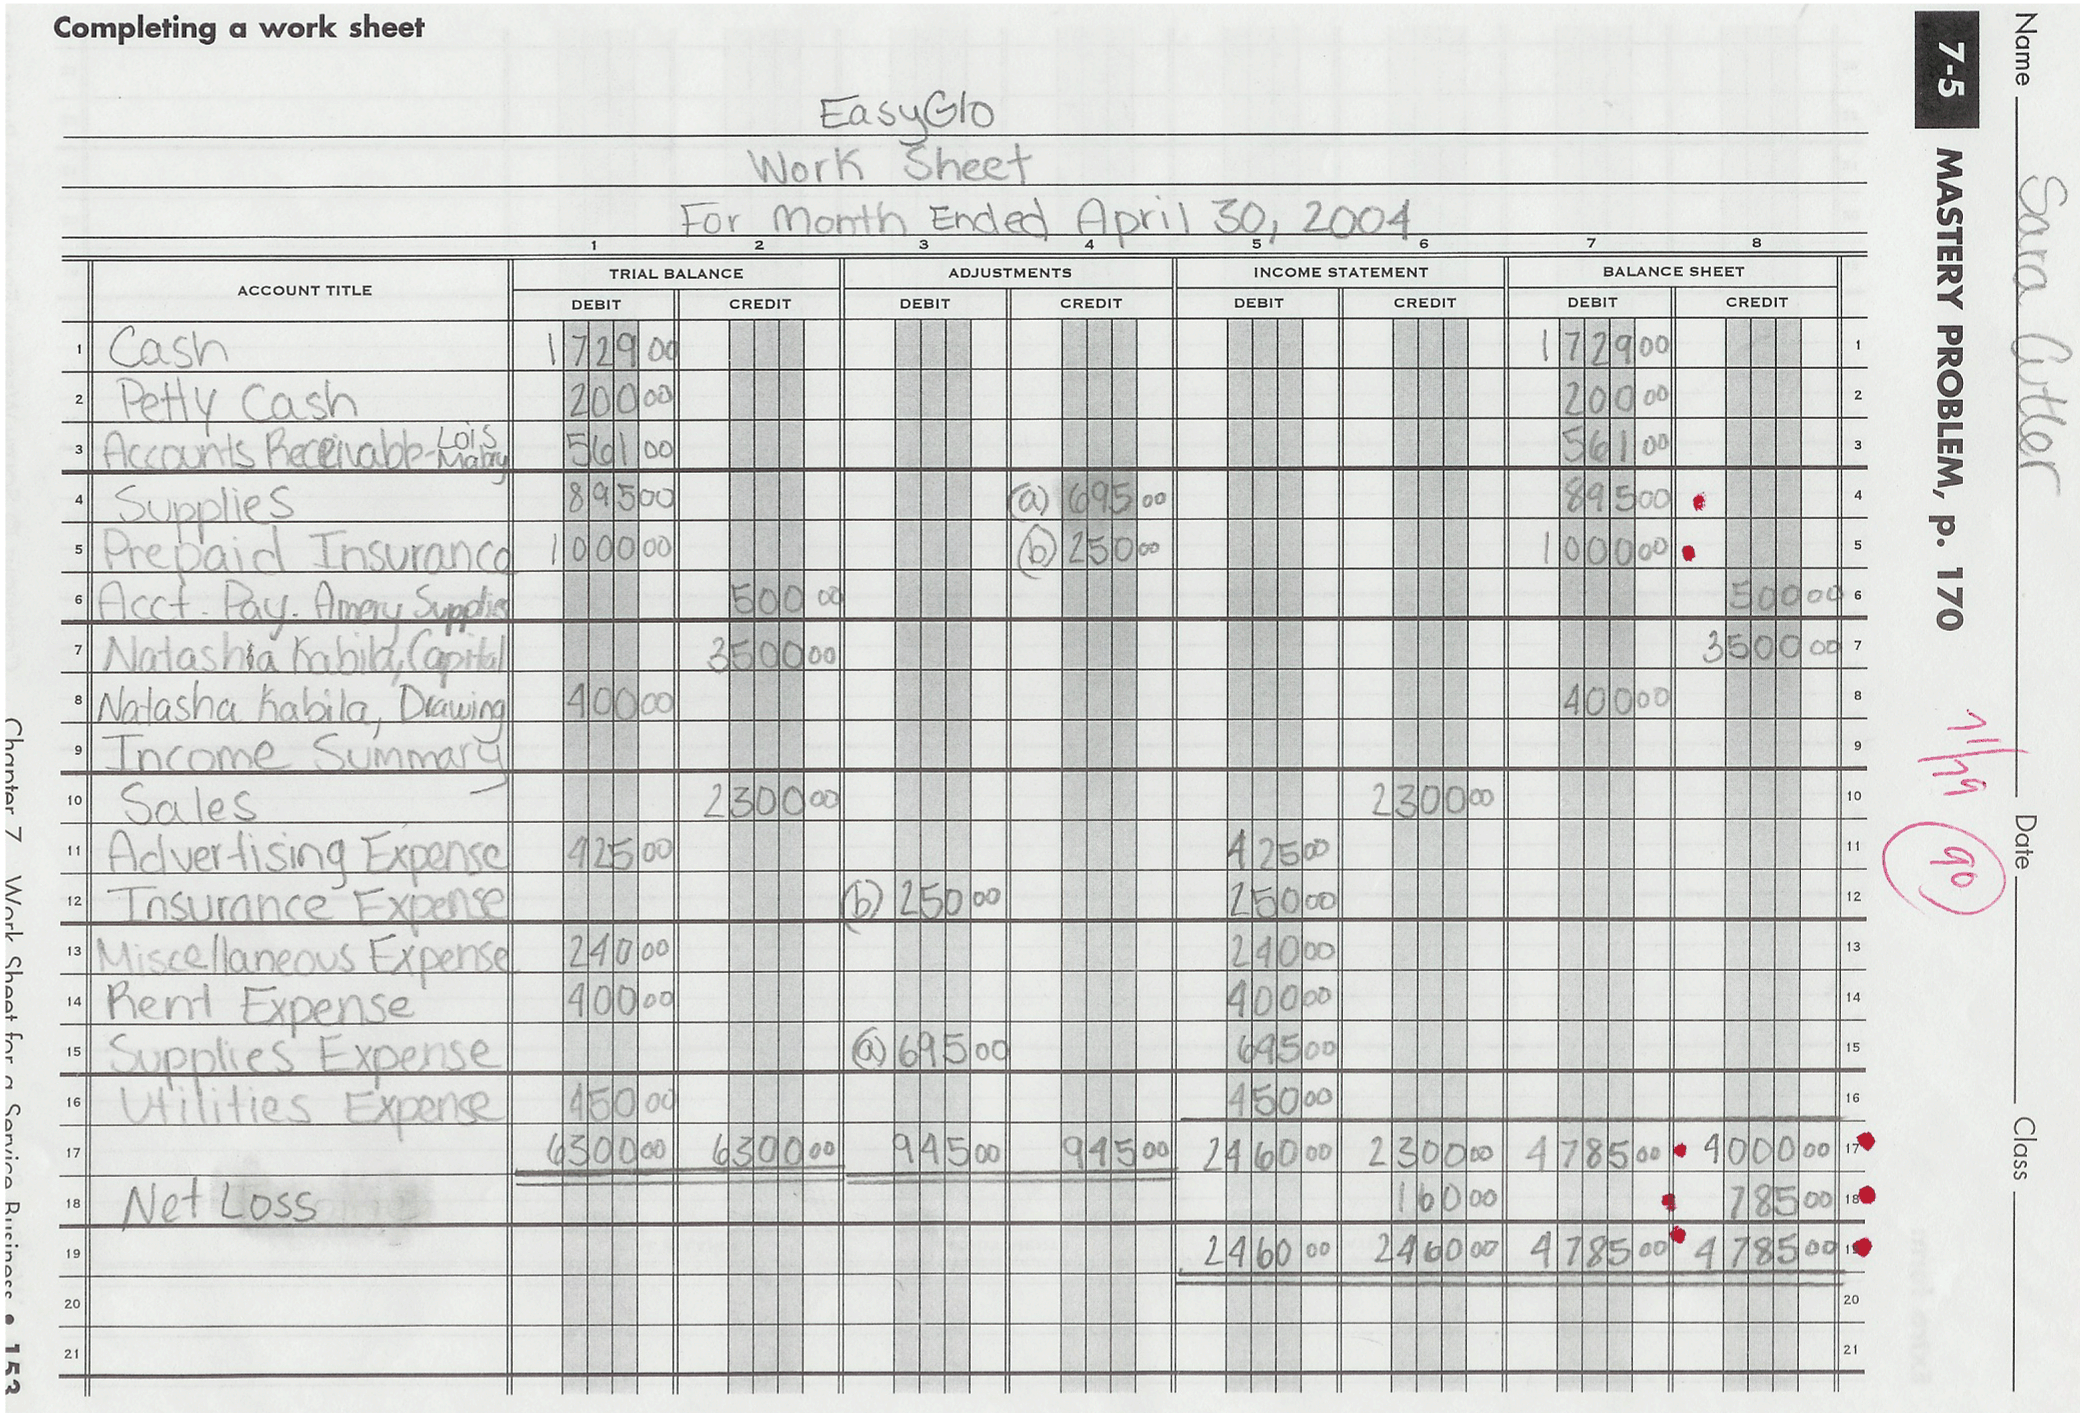 Completing a work sheet
EasyGlo
Work Sheet
For Month Ended April 30, 2004
1 2 3 4 5 6 7 8
ACCOUNT TITLE TRIAL BALANCE ADJUSTMENTS INCOME STATEMENT BALANCE SHEET
DEBIT CREDIT DEBIT CREDIT DEBIT CREDIT DEBIT CREDIT
1 Cash 1729 00 1729 00 1
2 Petty Cash 200 00 200 00 2
3 Accounts Receivable-Lois Mabry 561 00 561 00 3
4 Supplies 895 00 (a) 695 00 895 00 4
5 Prepaid Insurance 1000 00 (b) 250 00 1000 00 5
6 Acct. Pay. Amery Supplies 500 00 500 00 6
7 Natasha Kabila, Capital 3500 00 3500 00 7
8 Natasha Kabila, Drawing 400 00 400 00 8
9 Income Summary 9
10 Sales 2300 00 2300 00 10
11 Advertising Expense 425 00 425 00 11
12 Insurance Expense (b) 250 00 250 00 12
13 Miscellaneous Expense 240 00 240 00 13
14 Rent Expense 400 00 400 00 14
15 Supplies Expense (a) 695 00 695 00 15
16 Utilities Expense 450 00 450 00 16
17 6300 00 6300 00 945 00 945 00 2460 00 2300 00 4785 00 4000 00 17
18 Net Loss 160 00 785 00 18
19 2460 00 2460 00 4785 00 4785 00 19
20 20
21 21
Name Sara Cutler Date Class
7-5 MASTERY PROBLEM, p. 170
90
Chapter 7 Work Sheet for a Service Business • 153